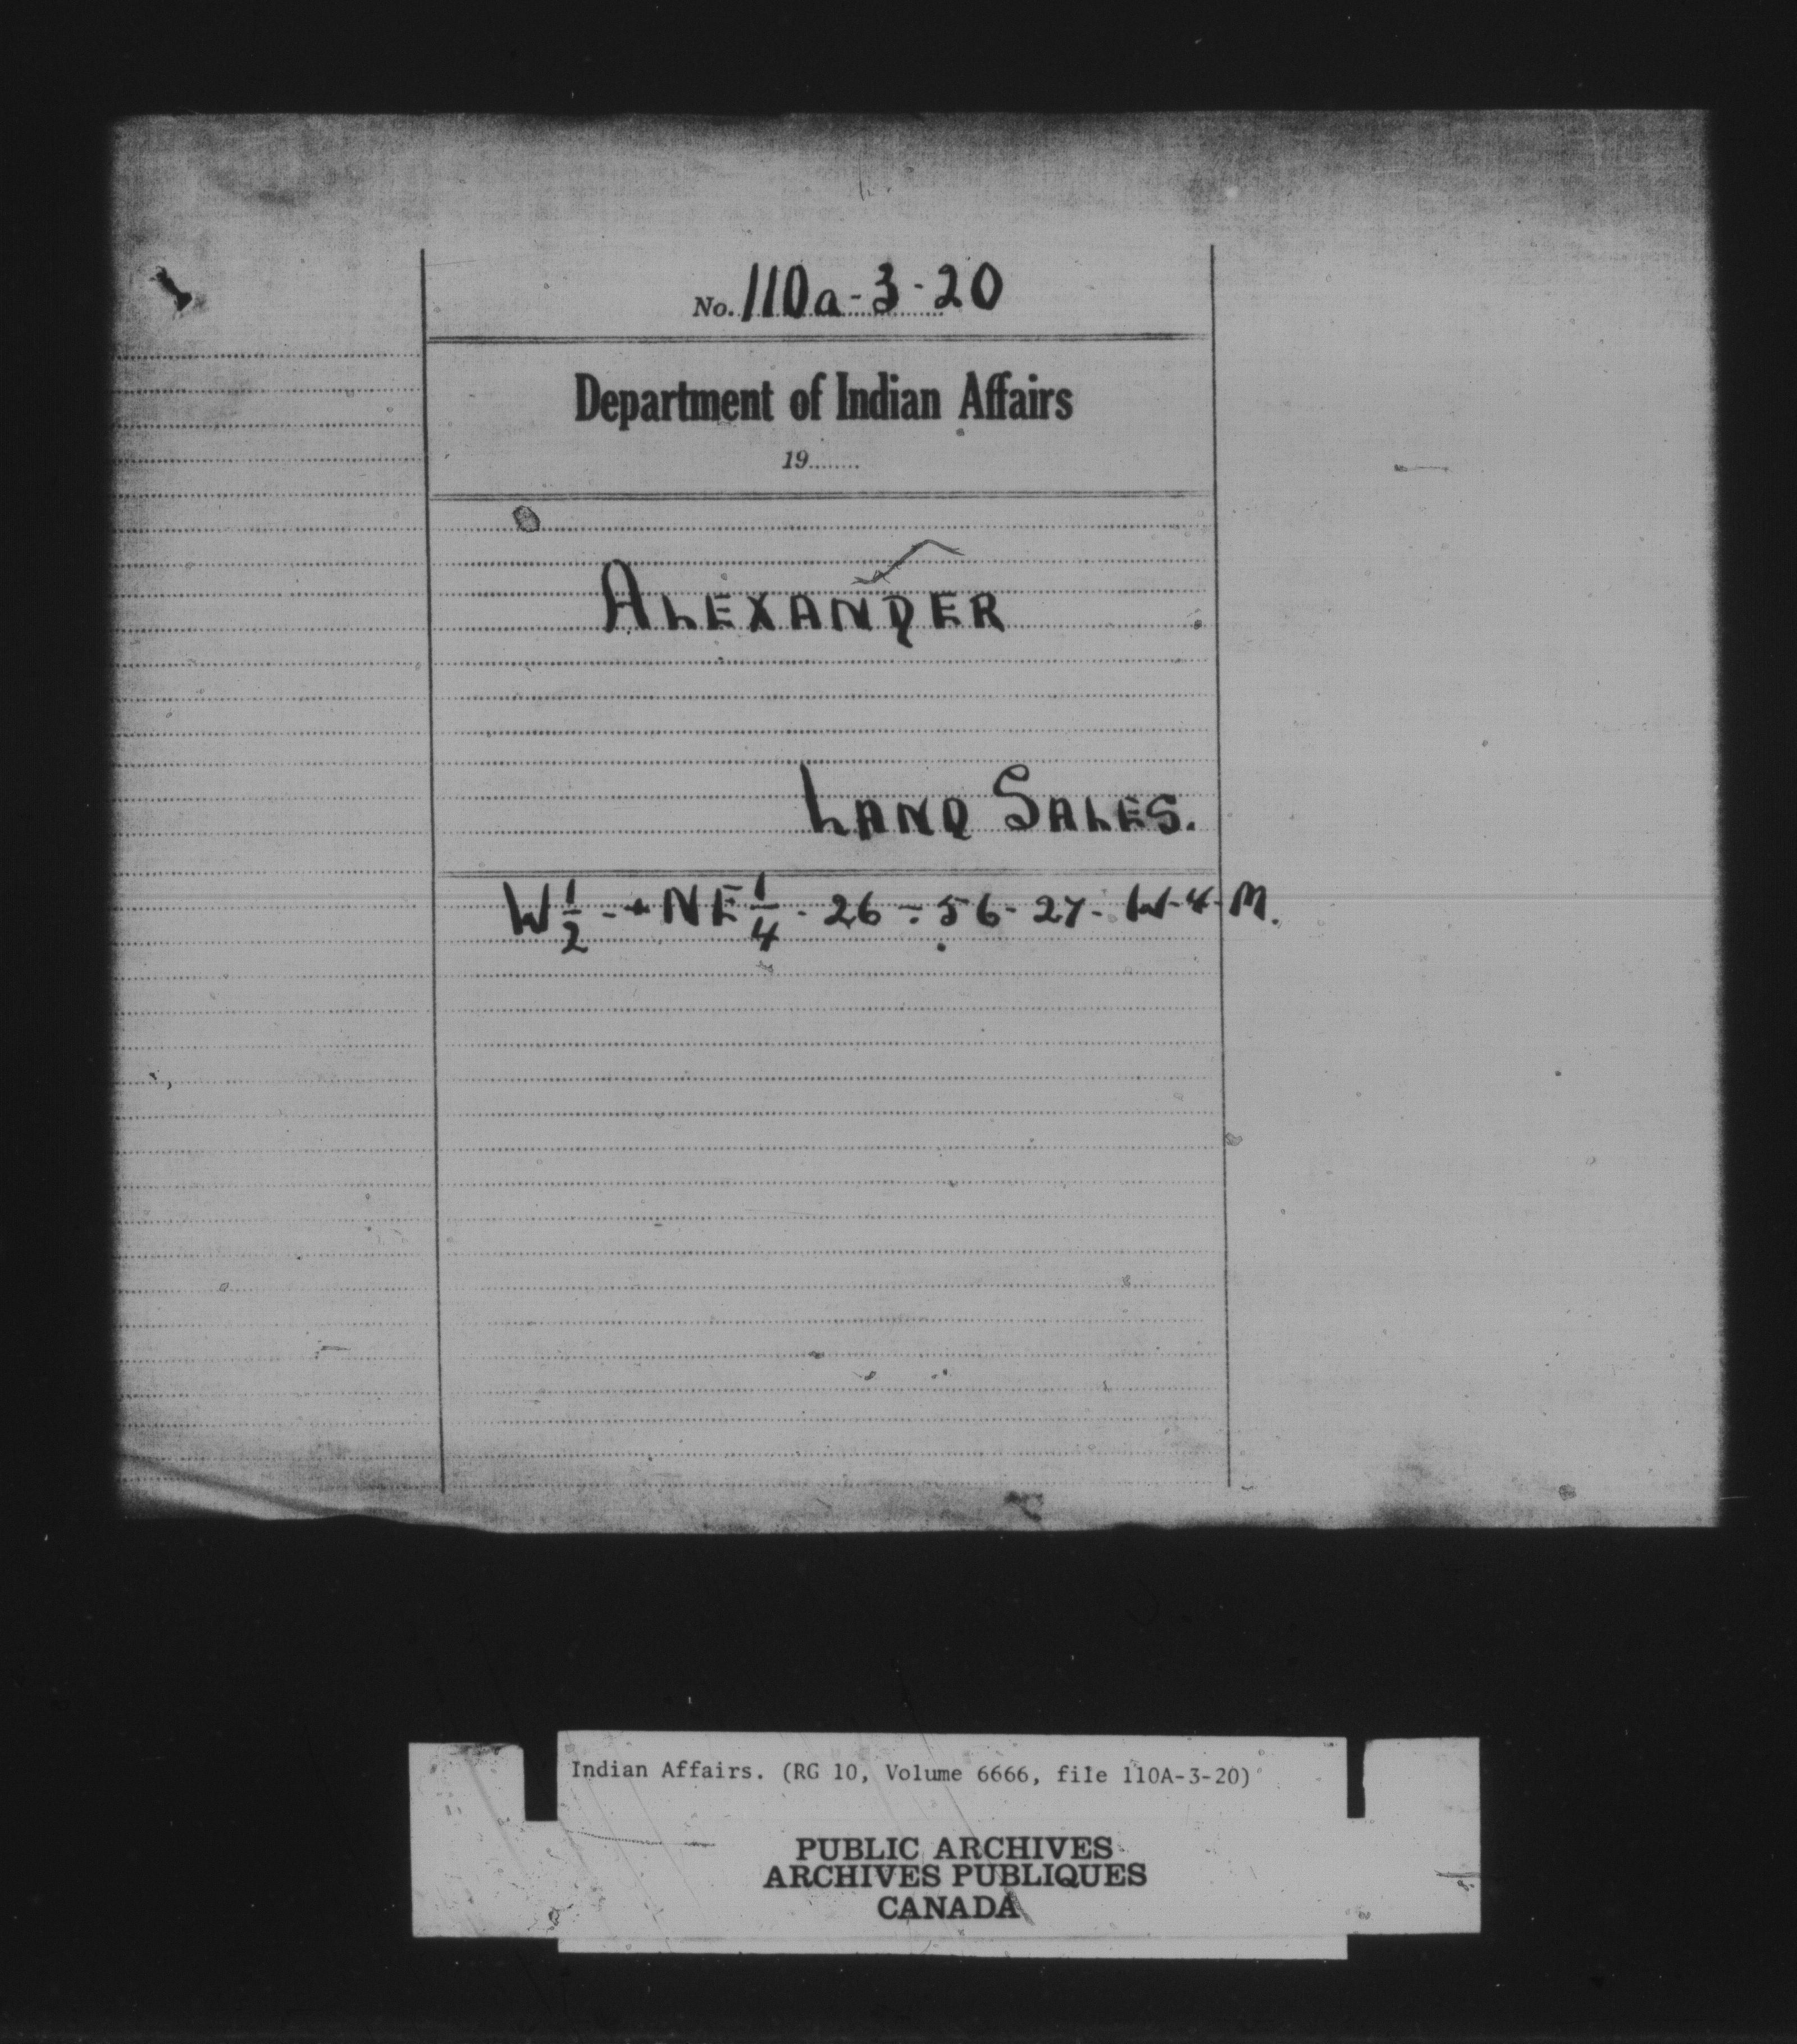 No. 110a-3-20
Department of Indian Affairs
19........
ALEXANDER
LAND SALES.
W 1/2 - + NE 1/4 - 26 - 56 - 27 - W-4-M.
Indian Affairs. (RG 10, Volume 6666, file 110A-3-20)
PUBLIC ARCHIVES
ARCHIVES PUBLIQUES
CANADA